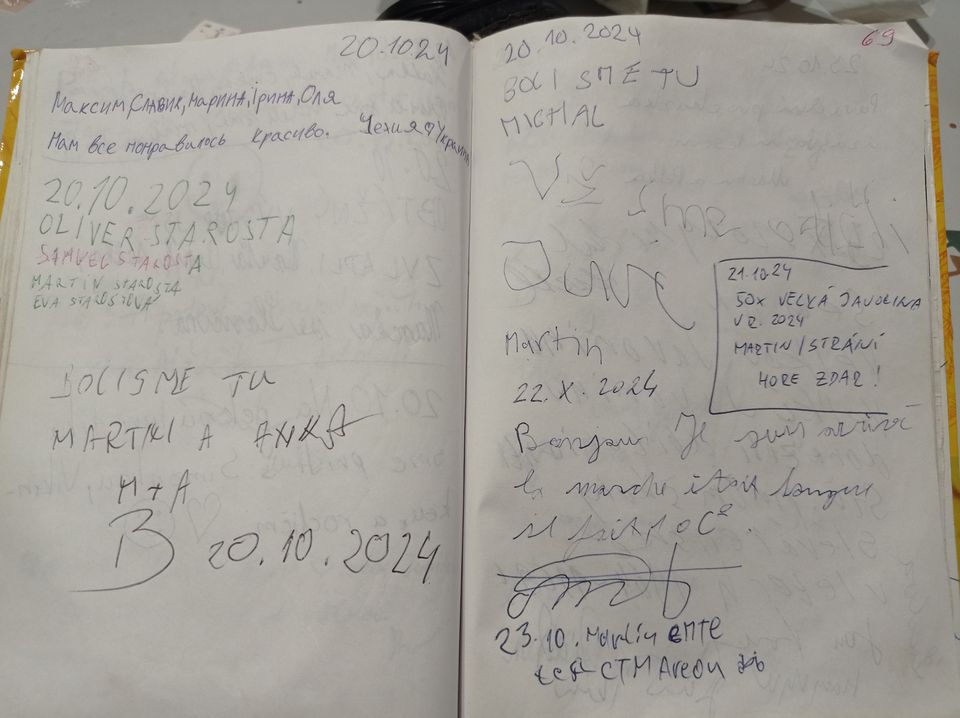 20.10.24
Максим, Славик, Марина, Ірина, Оля
Нам все понравилось красиво. Чехия Украина
20.10.2024
OLIVER STAROSTA
SAMUEL STAROSTA
MARTIN STAROSTA
EVA STAROSTOVÁ
BOLI SME TU
MARTIN A ANKA
M+A
B 20.10.2024
69
20.10.2024
BOLI SME TU
MICHAL
21.10.24
50x VELKÁ JAVOLINA
V R. 2024
MARTIN / STRÁNÍ
HORE ZDAR!
Martin
22.X.2024
Bonjour Je suis arrivé
la marche était longue
il fait 10 C°.
23.10. Martin